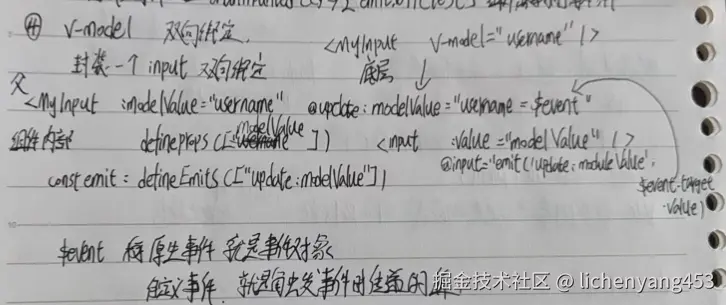 ④ v-model 双向绑定. <MyInput v-model="username" />
封装一个 input 双向绑定 底层
父
<MyInput :modelValue="username" @update:modelValue="username = $event"
组件内部 defineProps(["modelValue"]) <input :value="modelValue" />
@input="emit('update:moduleValue',
$event.target.value)
const emit = defineEmits(["update:modelValue"])
$event 原生事件 就是事件对象
自定义事件, 就是
掘金技术社区 @ lichenyang453